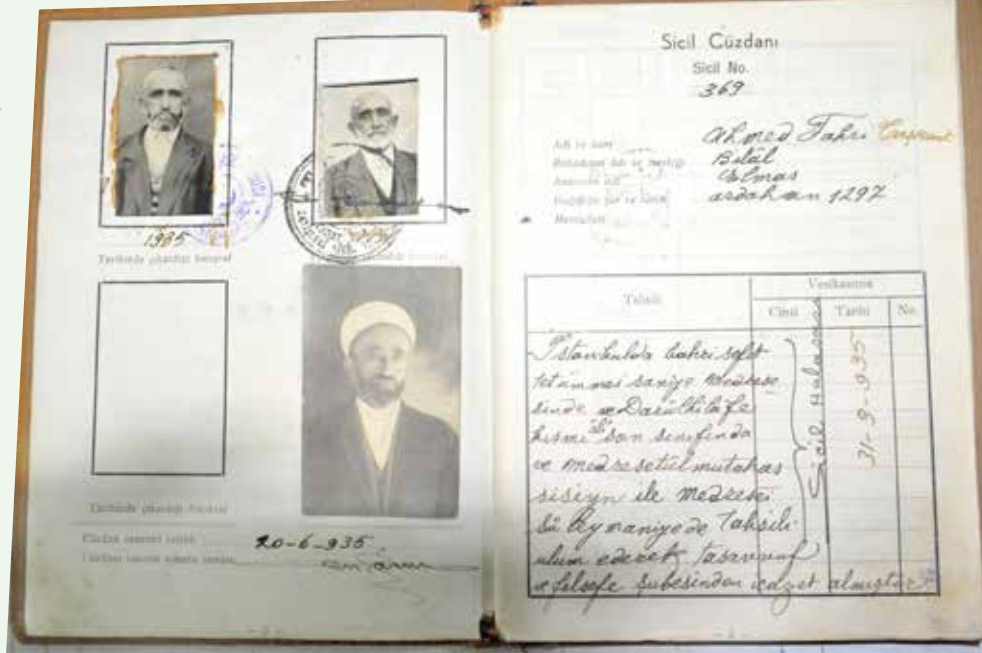 1935
Tarihinde çıkardığı fotoğraf
Tarihinde çıkardığı fotoğraf
20-6-935
Sicil Cüzdanı
Sicil No.
369
Adı ve sanı Ahmed Fahri
Babasının adı ve mesleği Bilâl
Anasının adı Elmas
Doğduğu yer ve tarih ardahan 1297
Memuriyeti
Tahsili
Vesikasının
Cinsi Tarihi No.
İstanbulda bahri sefit
tetümmei saniye medrese
sinde ve Darülhilâfe
kısmı âli son sınıfında
ve medresetül mutahas
sisiyn ile medresei
Süleymaniyede Tahsili
ulum ederek Tasavvuf
ve felsefe şubesinden icazet almıştır
Sicil Hulasası
31-3-935